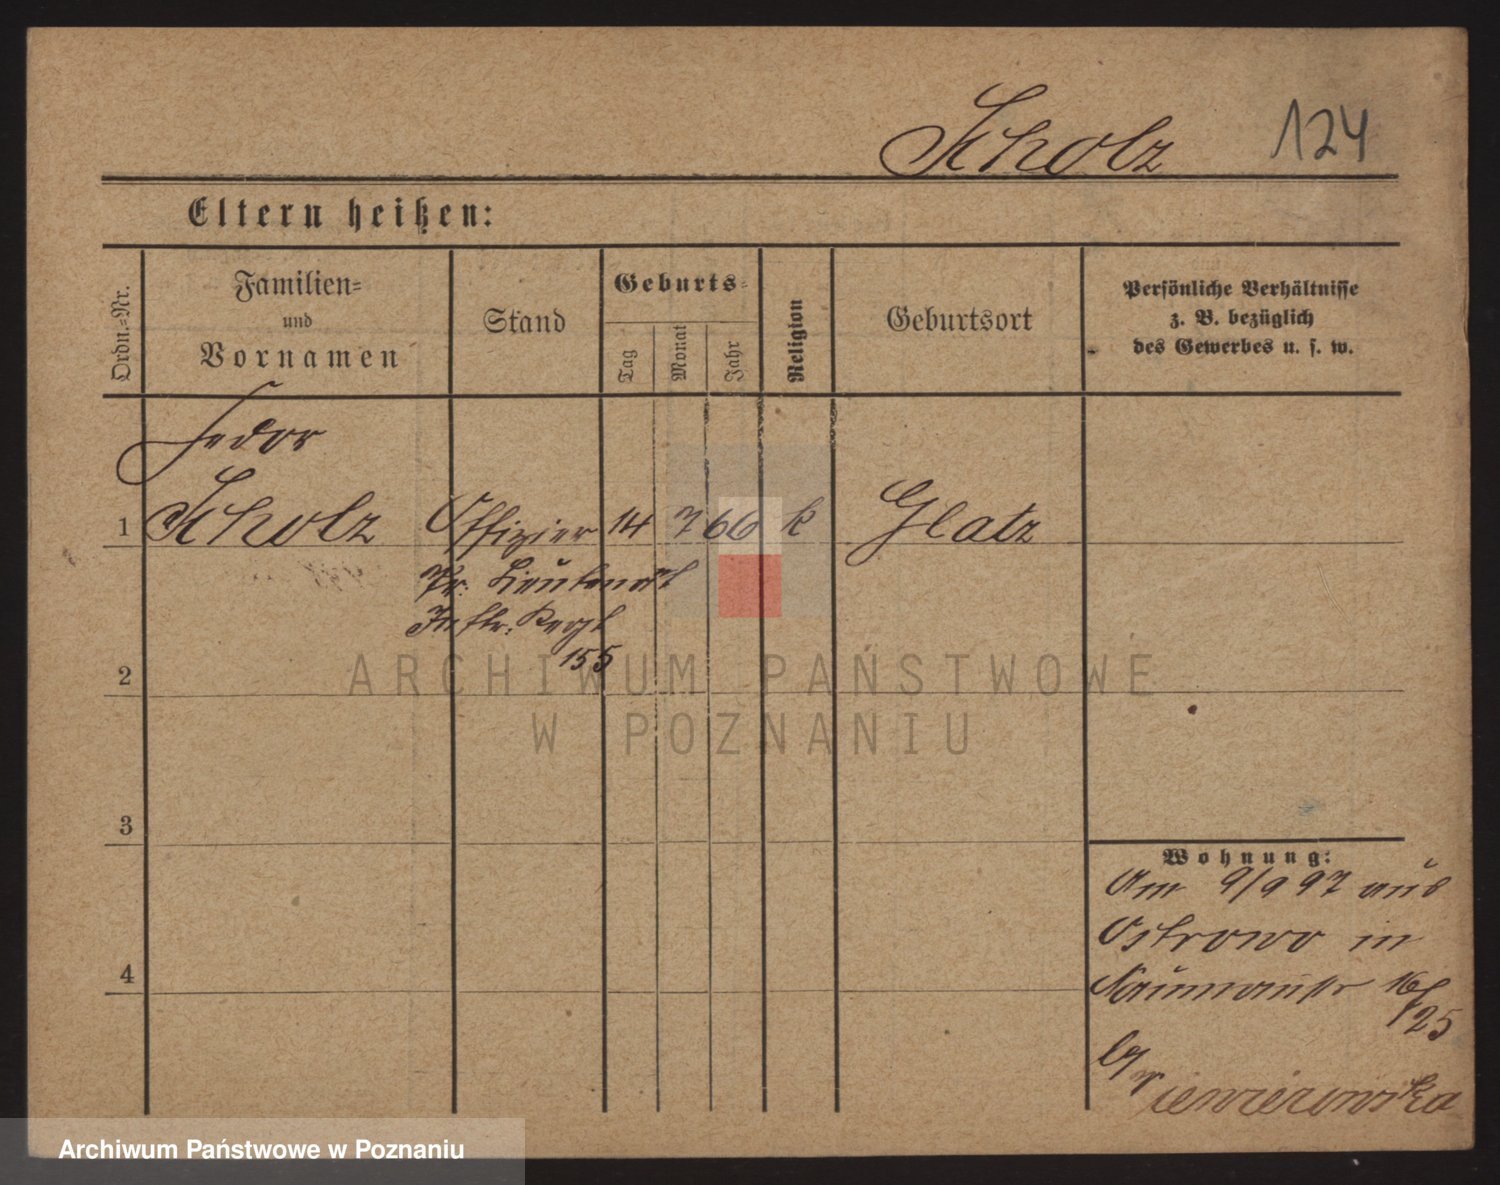 Scholz 124
Eltern heißen:
Ordn.=Nr.
Familien=
und
Vornamen
Stand
Geburts=
Tag
Monat
Jahr
Religion
Geburtsort
Persönliche Verhältnisse
z. B. bezüglich
des Gewerbes u. s. w.
Fedor
1 Scholz Offizier 14 7 66 k Glatz
Pr. Lieutenant
Inftr. Regt
155
2
3
4
Wohnung:
Am 9/9 97 aus
Ostrowo in
Naumannstr 16/
25
ARCHIWUM PAŃSTWOWE
W POZNANIU
Archiwum Państwowe w Poznaniu